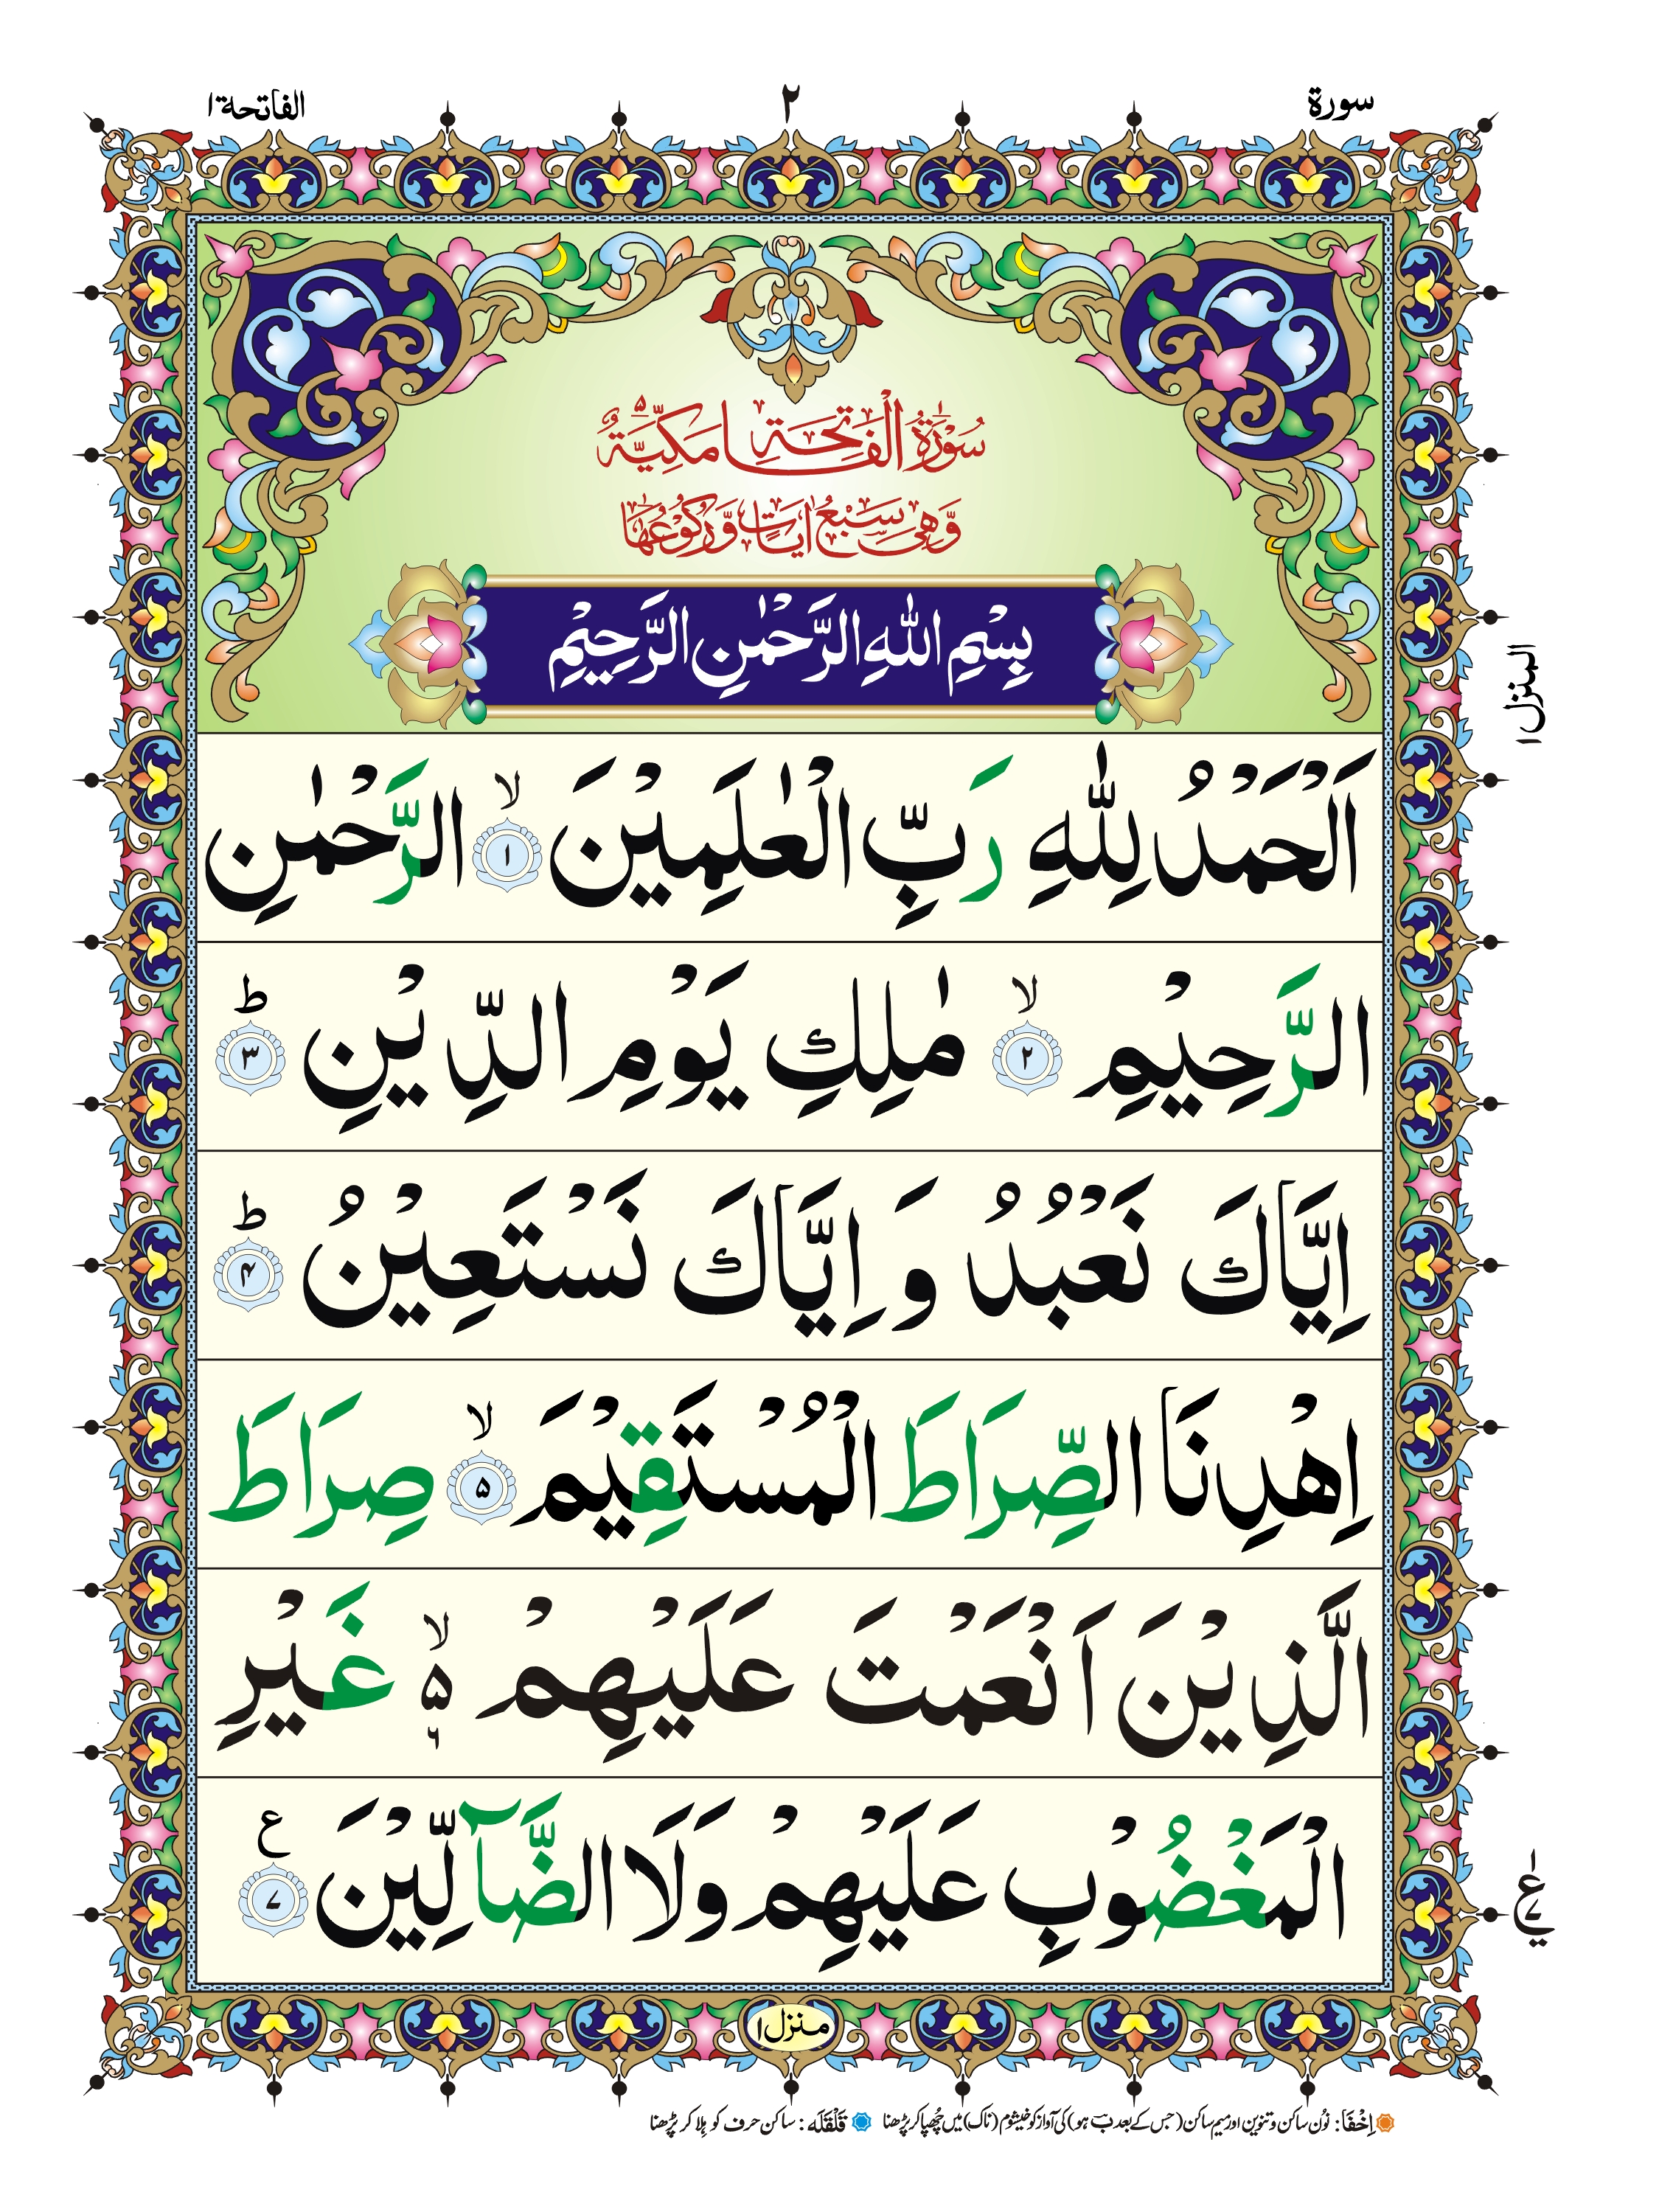 سورة ۲ الفاتحة ۱
سُوْرَةُ الْفَاتِحَةِ مَكِّیَّةٌ ۵
وَّهِیَ سَبْعُ اٰیَاتٍ وَّرُكُوْعُهَا
بِسْمِ اللّٰهِ الرَّحْمٰنِ الرَّحِیْمِ
اَلْحَمْدُ لِلّٰهِ رَبِّ الْعٰلَمِیْنَ ۙ ۱ الرَّحْمٰنِ
الرَّحِیْمِ ۙ ۲ مٰلِكِ یَوْمِ الدِّیْنِ ؕ ۳
اِیَّاكَ نَعْبُدُ وَ اِیَّاكَ نَسْتَعِیْنُ ؕ ۴
اِهْدِنَا الصِّرَاطَ الْمُسْتَقِیْمَ ۙ ۵ صِرَاطَ
الَّذِیْنَ اَنْعَمْتَ عَلَیْهِمْ ۙ ۵ ۶ غَیْرِ
الْمَغْضُوْبِ عَلَیْهِمْ وَلَا الضَّآلِّیْنَ ع ۷
المنزل ۱
ع
منزل ۱
اِخْفَا: نُون ساکن و تنوین اور میم ساکن (جس کے بعد ب ہو) کی آواز کو خیشوم (ناک) میں چُھپا کر پڑھنا قَلْقَلَہ: ساکن حرف کو ہِلا کر پڑھنا